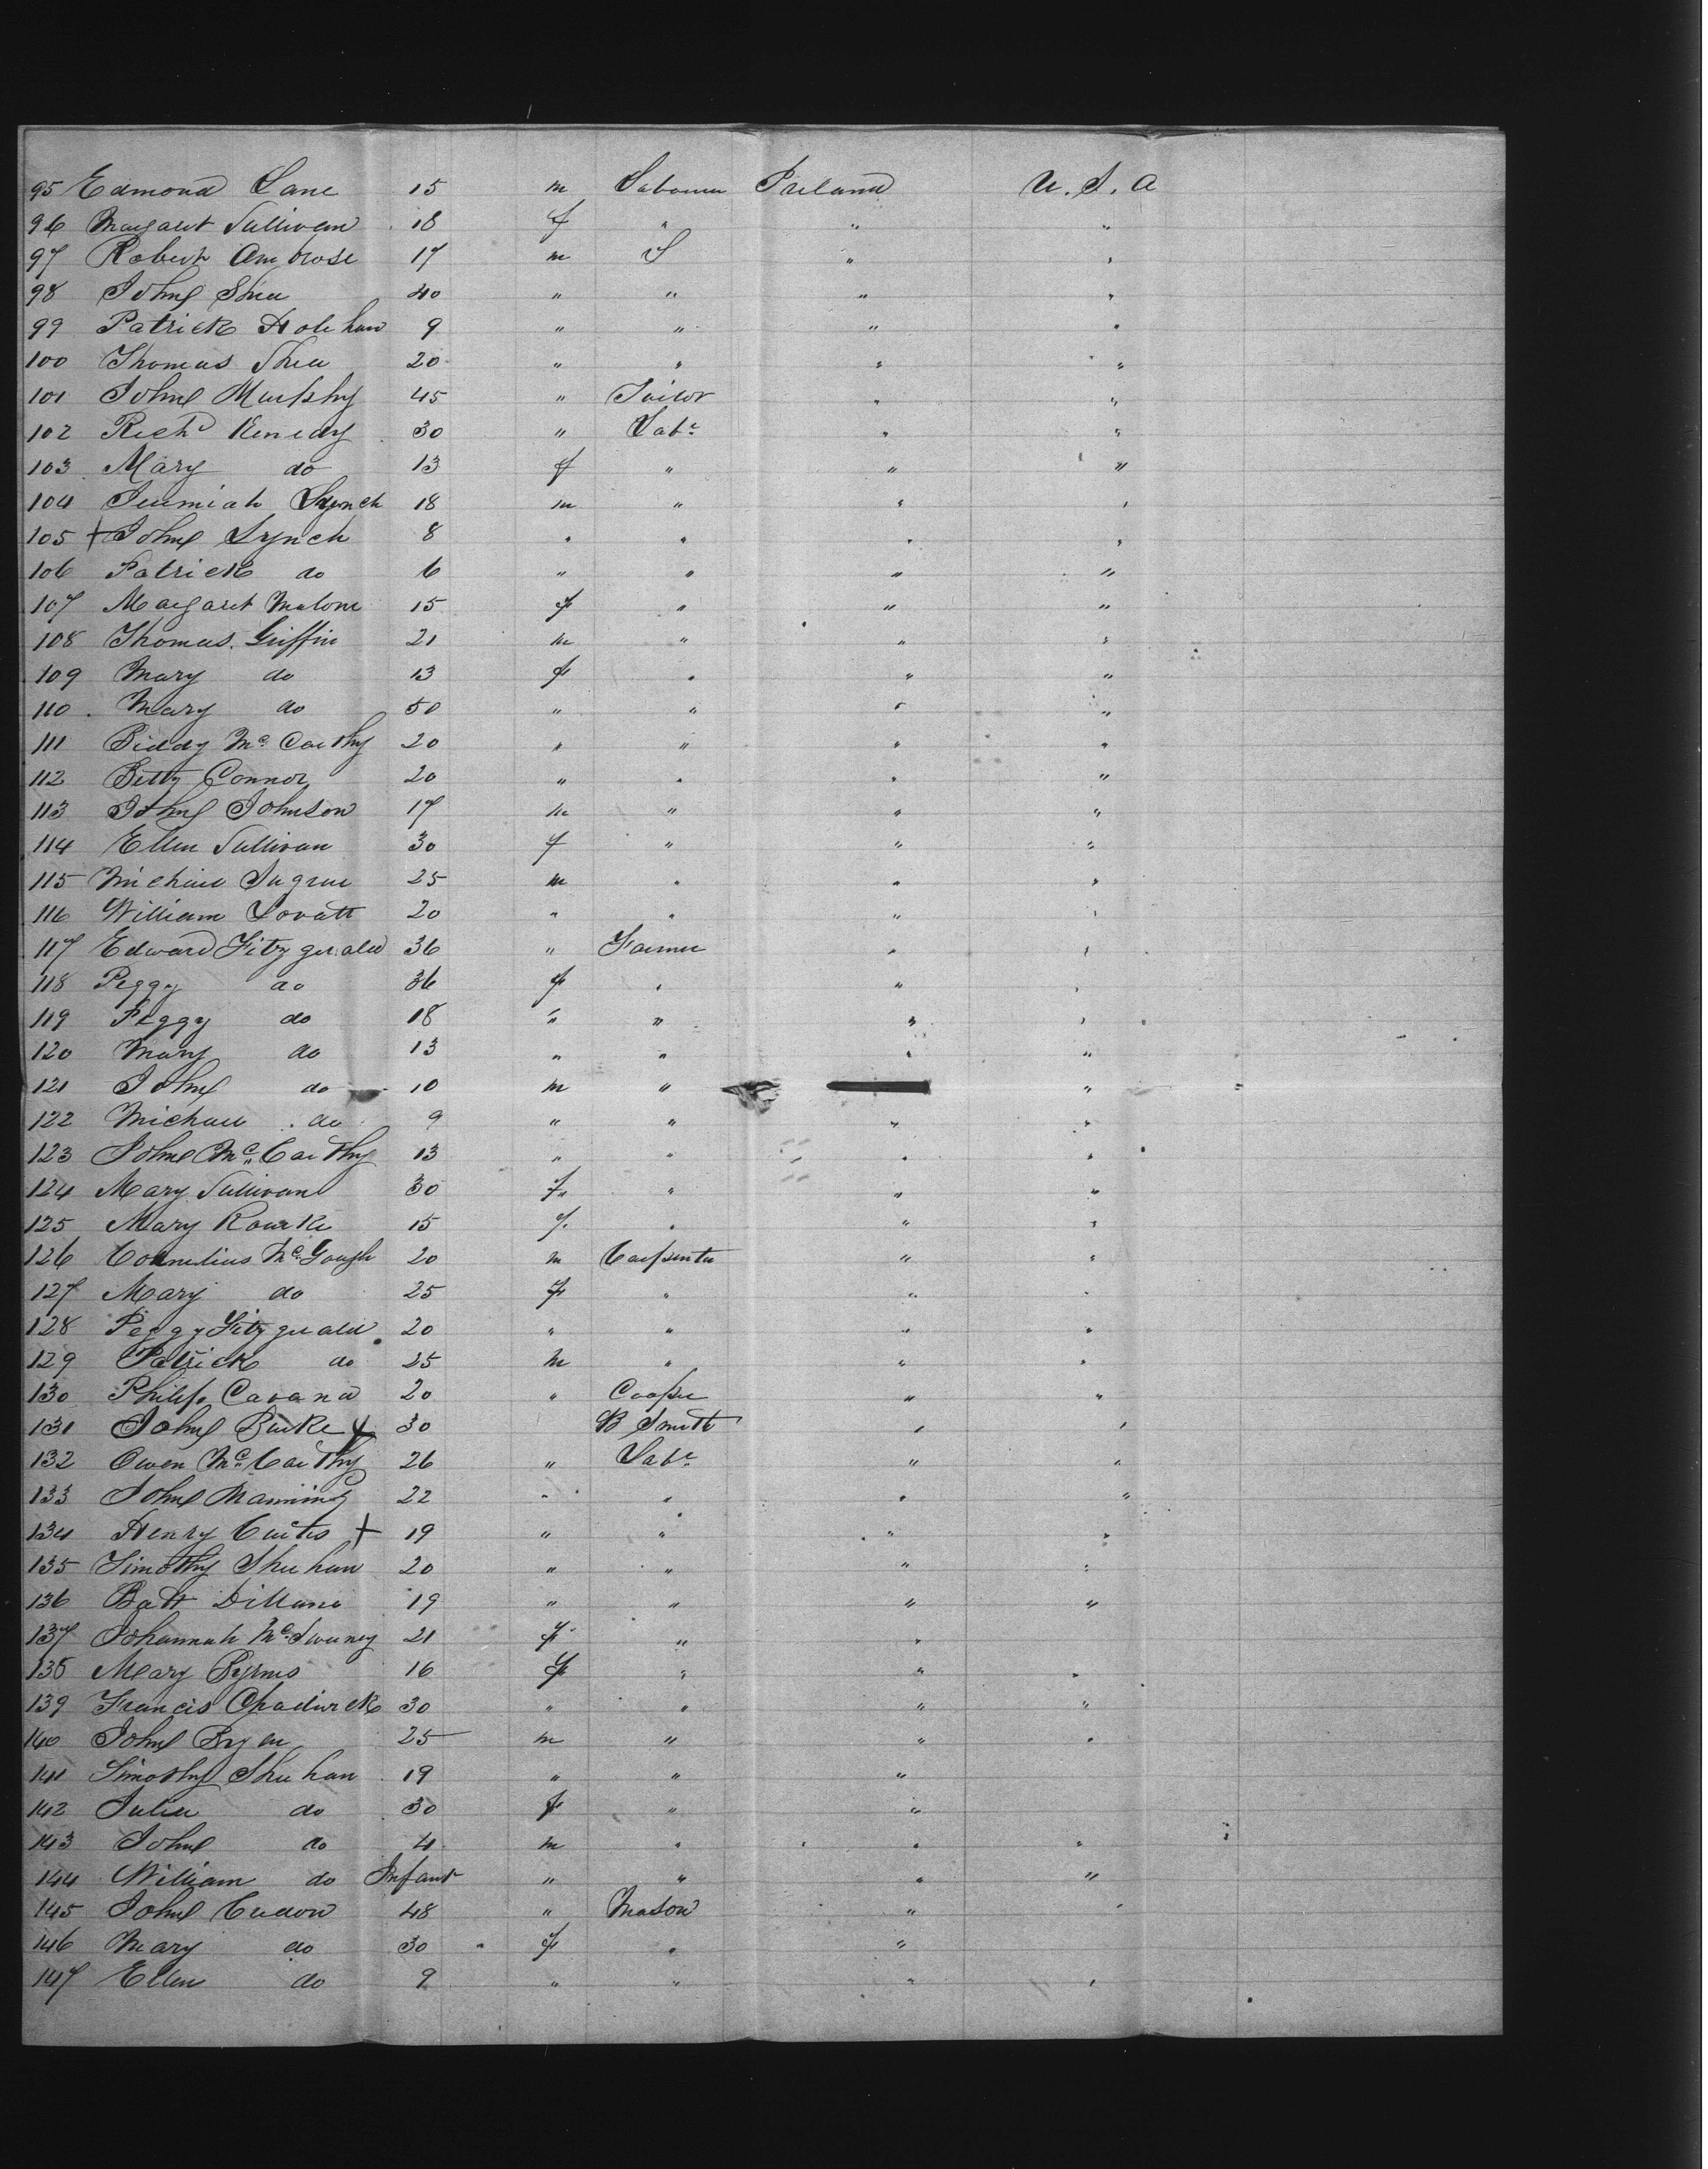 95 Edmond Lane 15 m Labourer Ireland U. S. A
96 Margaret Sullivan 18 f " " "
97 Robert Ambrose 17 m " "
98 John Shea 40 " " " "
99 Patrick Holehan 9 " " " "
100 Thomas Shea 20 " " " "
101 John Murphy 45 " Tailor " "
102 Richd Kenedy 30 " Labr " "
103 Mary do 13 f " " "
104 Jeremiah Lynch 18 m " " "
105 + John Lynch 8 " " " "
106 Patrick do 6 " " " "
107 Margaret Malone 15 f " " "
108 Thomas Griffin 21 m " " "
109 Mary do 13 f " " "
110 Mary do 50 " " " "
111 Biddy Mc Carthy 20 " " " "
112 Betty Connor 20 " " " "
113 John Johnson 17 m " " "
114 Ellen Sullivan 30 f " " "
115 Michael 25 m " " "
116 William Lovatt 20 " " " "
117 Edward Fitzgerald 36 " Farmer " "
118 Peggy do 36 f " " "
119 Peggy do 18 " " " "
120 Mary do 13 " " " "
121 John do 10 m " "
122 Michael do 9 " " " "
123 John Mc Carthy 13 " " " "
124 Mary Sullivan 30 f " " "
125 Mary Rourke 15 f " " "
126 Cornelius Mc Gough 20 m Carpenter " "
127 Mary do 25 f " " "
128 Peggy Fitzgerald 20 " " " "
129 Patrick do 25 m " " "
130 Philip Cavana 20 " Cooper " "
131 John Burke + 30 B Smith " "
132 Owen Mc Carthy 26 " Labr " "
133 John Manning 22 " " " "
134 Henry Curtis + 19 " " " "
135 Timothy Shehan 20 " " " "
136 Batt Dillane 19 " " " "
137 Johannah Mc Sweeney 21 f " "
138 Mary Byrnes 16 f " " "
139 Francis Chadwick 30 " " " "
140 John Bryen 25 m " " "
141 Timothy Shehan 19 " " "
142 Julia do 30 f " "
143 John do 4 m " " "
144 William do Infant " " " "
145 John Credon 48 " Mason " "
146 Mary do 30 f " "
147 Ellen do 9 " " " "